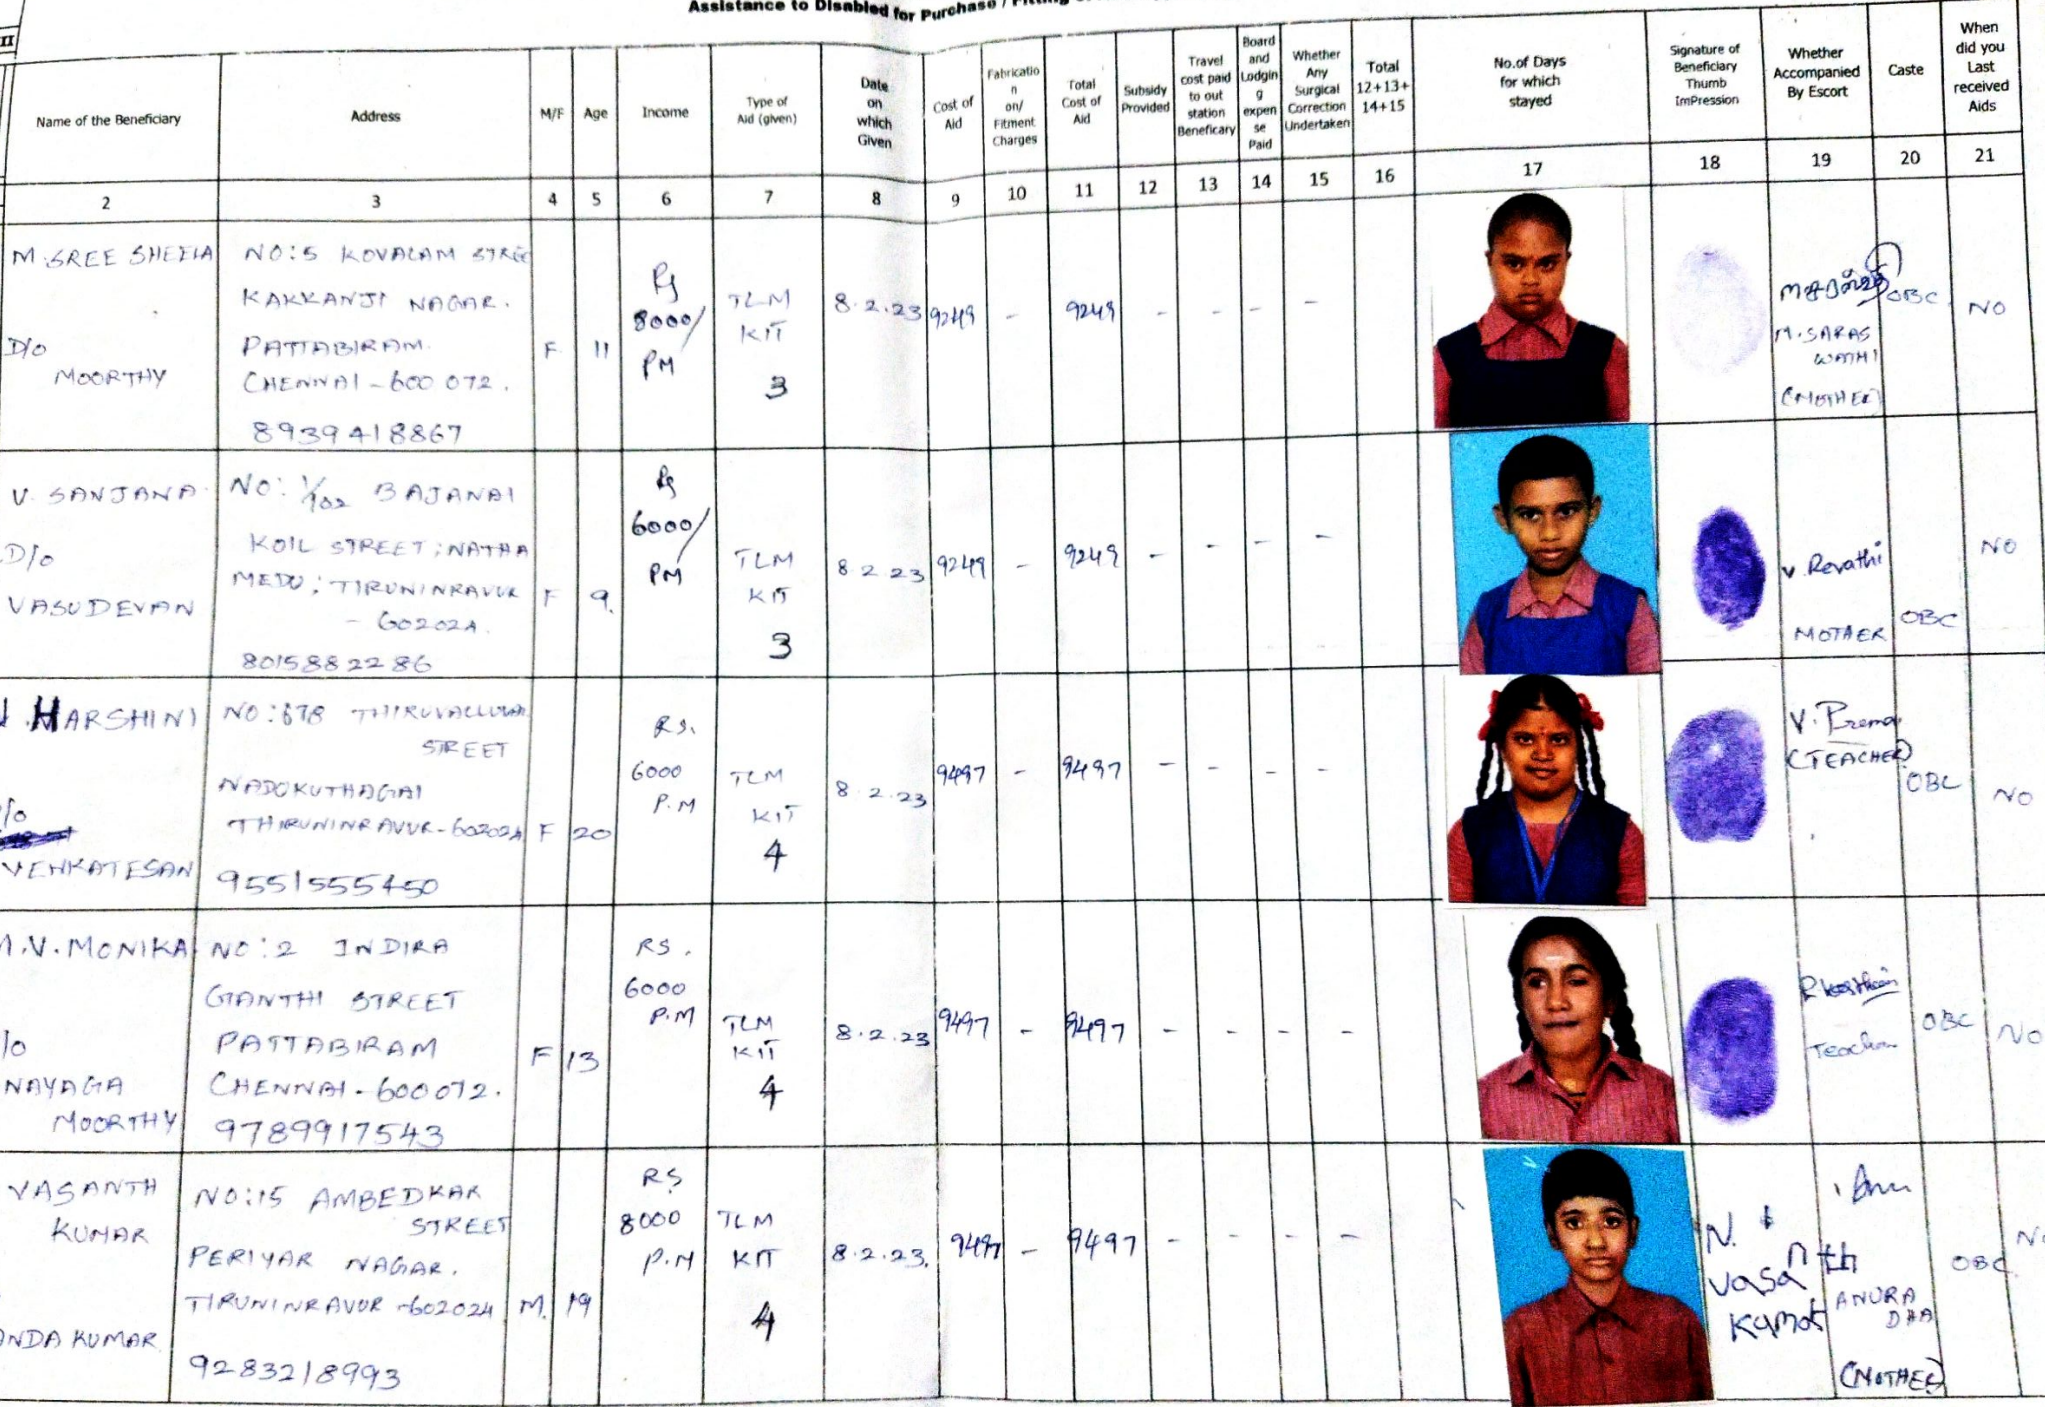 Assistance to Disabled for Purchase /
II
Name of the Beneficiary
Address
M/F
Age
Income
Type of
Aid (given)
Date
on
which
Given
Cost of
Aid
Fabricatio
n
on/
Fitment
Charges
Total
Cost of
Aid
Subsidy
Provided
Travel
cost paid
to out
station
Beneficary
Board
and
Lodgin
g
expen
se
Paid
Whether
Any
Surgical
Correction
Undertaken
Total
12+13+
14+15
No.of Days
for which
stayed
Signature of
Beneficiary
Thumb
ImPression
Whether
Accompanied
By Escort
Caste
When
did you
Last
received
Aids
2 3 4 5 6 7 8 9 10 11 12 13 14 15 16 17 18 19 20 21
M. SREE SHEELA
D/o
MOORTHY
NO:5 KOVALAM STREE
KAKKANJI NAGAR.
PATTABIRAM.
CHENNAI-600 072.
8939418867
F
11
Rs
8000/
PM
TLM
KIT
3
8.2.23
9249
-
9249
-
-
-
-
M. SARAS
WATHI
(MOTHER)
OBC
NO
V. SANJANA
D/o
VASUDEVAN
NO: 1/102 BAJANAI
KOIL STREET; NATHA
MEDU; TIRUNINRAVUR
- 602024.
8015882286
F
9.
Rs
6000/
PM
TLM
KIT
3
8.2.23
9249
-
9249
-
-
-
-
V. Revathi
MOTHER
OBC
NO
HARSHINI
/o
VENKATESAN
NO:678 THIRUVALLUVAR
STREET
NADUKUTHAGAI
THIRUNINRAVUR-602024
9551555450
F
20
Rs.
6000
P.M
TLM
KIT
4
8.2.23
9497
-
9497
-
-
-
-
V. Prema
(TEACHER)
OBC
NO
.V. MONIKA
/o
NAYAGA
MOORTHY
NO:2 INDIRA
GANTHI STREET
PATTABIRAM
CHENNAI-600072.
9789917543
F
13
RS.
6000
P.M
TLM
KIT
4
8.2.23
9497
-
9497
-
-
-
-
Teacher
OBC
NO
VASANTH
KUMAR
NDA KUMAR
NO:15 AMBEDKAR
STREET
PERIYAR NAGAR.
TIRUNINRAVUR-602024
9283218993
M.
19
RS
8000
P.M
TLM
KIT
4
8.2.23.
9497
-
9497
-
-
-
-
N.
Vasanth
Kumar
ANURA
DHA
(MOTHER)
OBC